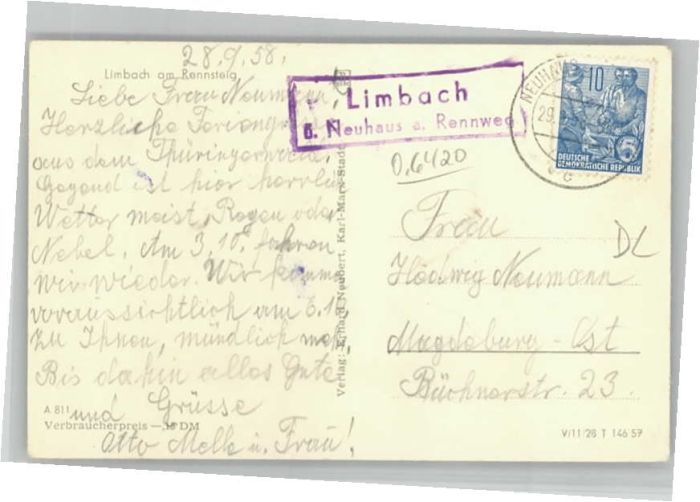 28.9.58.
Limbach am Rennsteig
Liebe Frau Neumann,
Herzliche Feriengrü
aus dem Thüringerwald.
Gegend ist hier herrlich
Wetter meist Regen oder
Nebel. Am 3.10. fahren
wir wieder. Wir kommen
voraussichtlich am 6.10
zu Ihnen, mündlich mehr
Bis dahin alles Gute
und Grüsse
Otto Melle u. Frau!
A 811
Verbraucherpreis — DM
Verlag: Erhard Neubert, Karl-Marx-Stadt
Limbach
ü. Neuhaus a. Rennweg
NEUHAU
29.
10
5
DEUTSCHE
DEMOKRATISCHE REPUBLIK
0,6420
DL
Frau
Hedwig Neumann
Magdeburg-Ost
Büchnerstr. 23.
V/11/28 T 146 59